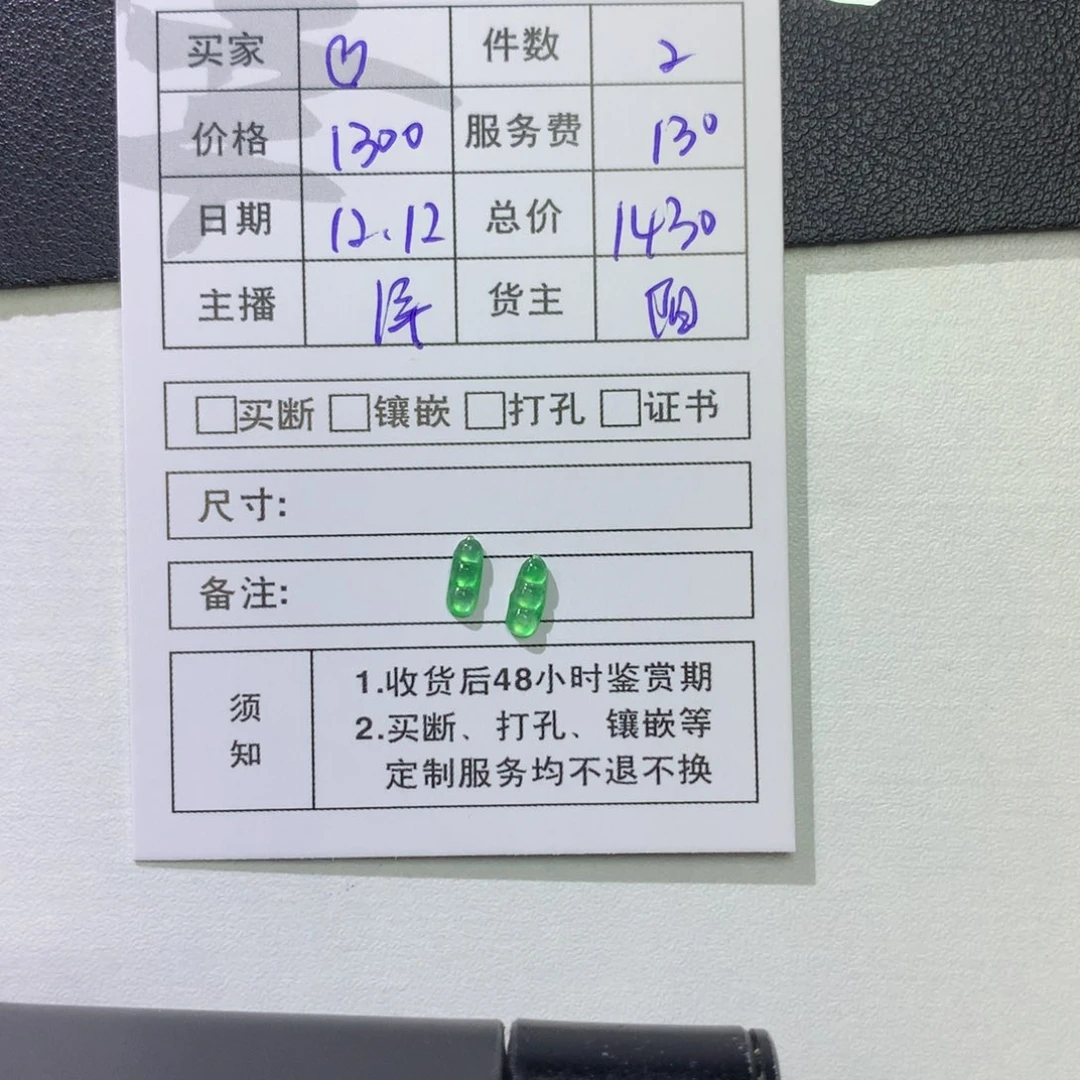 买家 件数 2
价格 1300 服务费 130
日期 12.12 总价 1430
主播 货主 阳
买断 镶嵌 打孔 证书
尺寸:
备注:
须知
1.收货后48小时鉴赏期
2.买断、打孔、镶嵌等
定制服务均不退不换